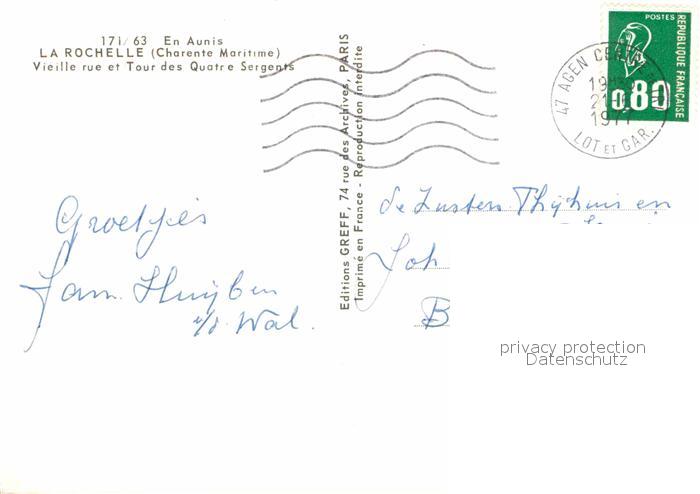 171/63 En Aunis
LA ROCHELLE (Charente Maritime)
Vieille rue et Tour des Quatre Sergents
Editions GREFF, 74 rue des Archives, PARIS
Imprimé en France - Reproduction interdite
POSTES
REPUBLIQUE FRANÇAISE
0,80
47 AGEN
19H
21
LOT ET GAR.
Groetjes
Fam. Huijben
v/d. Wal.
de Zusters Thijhuis en
Joh
B
privacy protection
Datenschutz